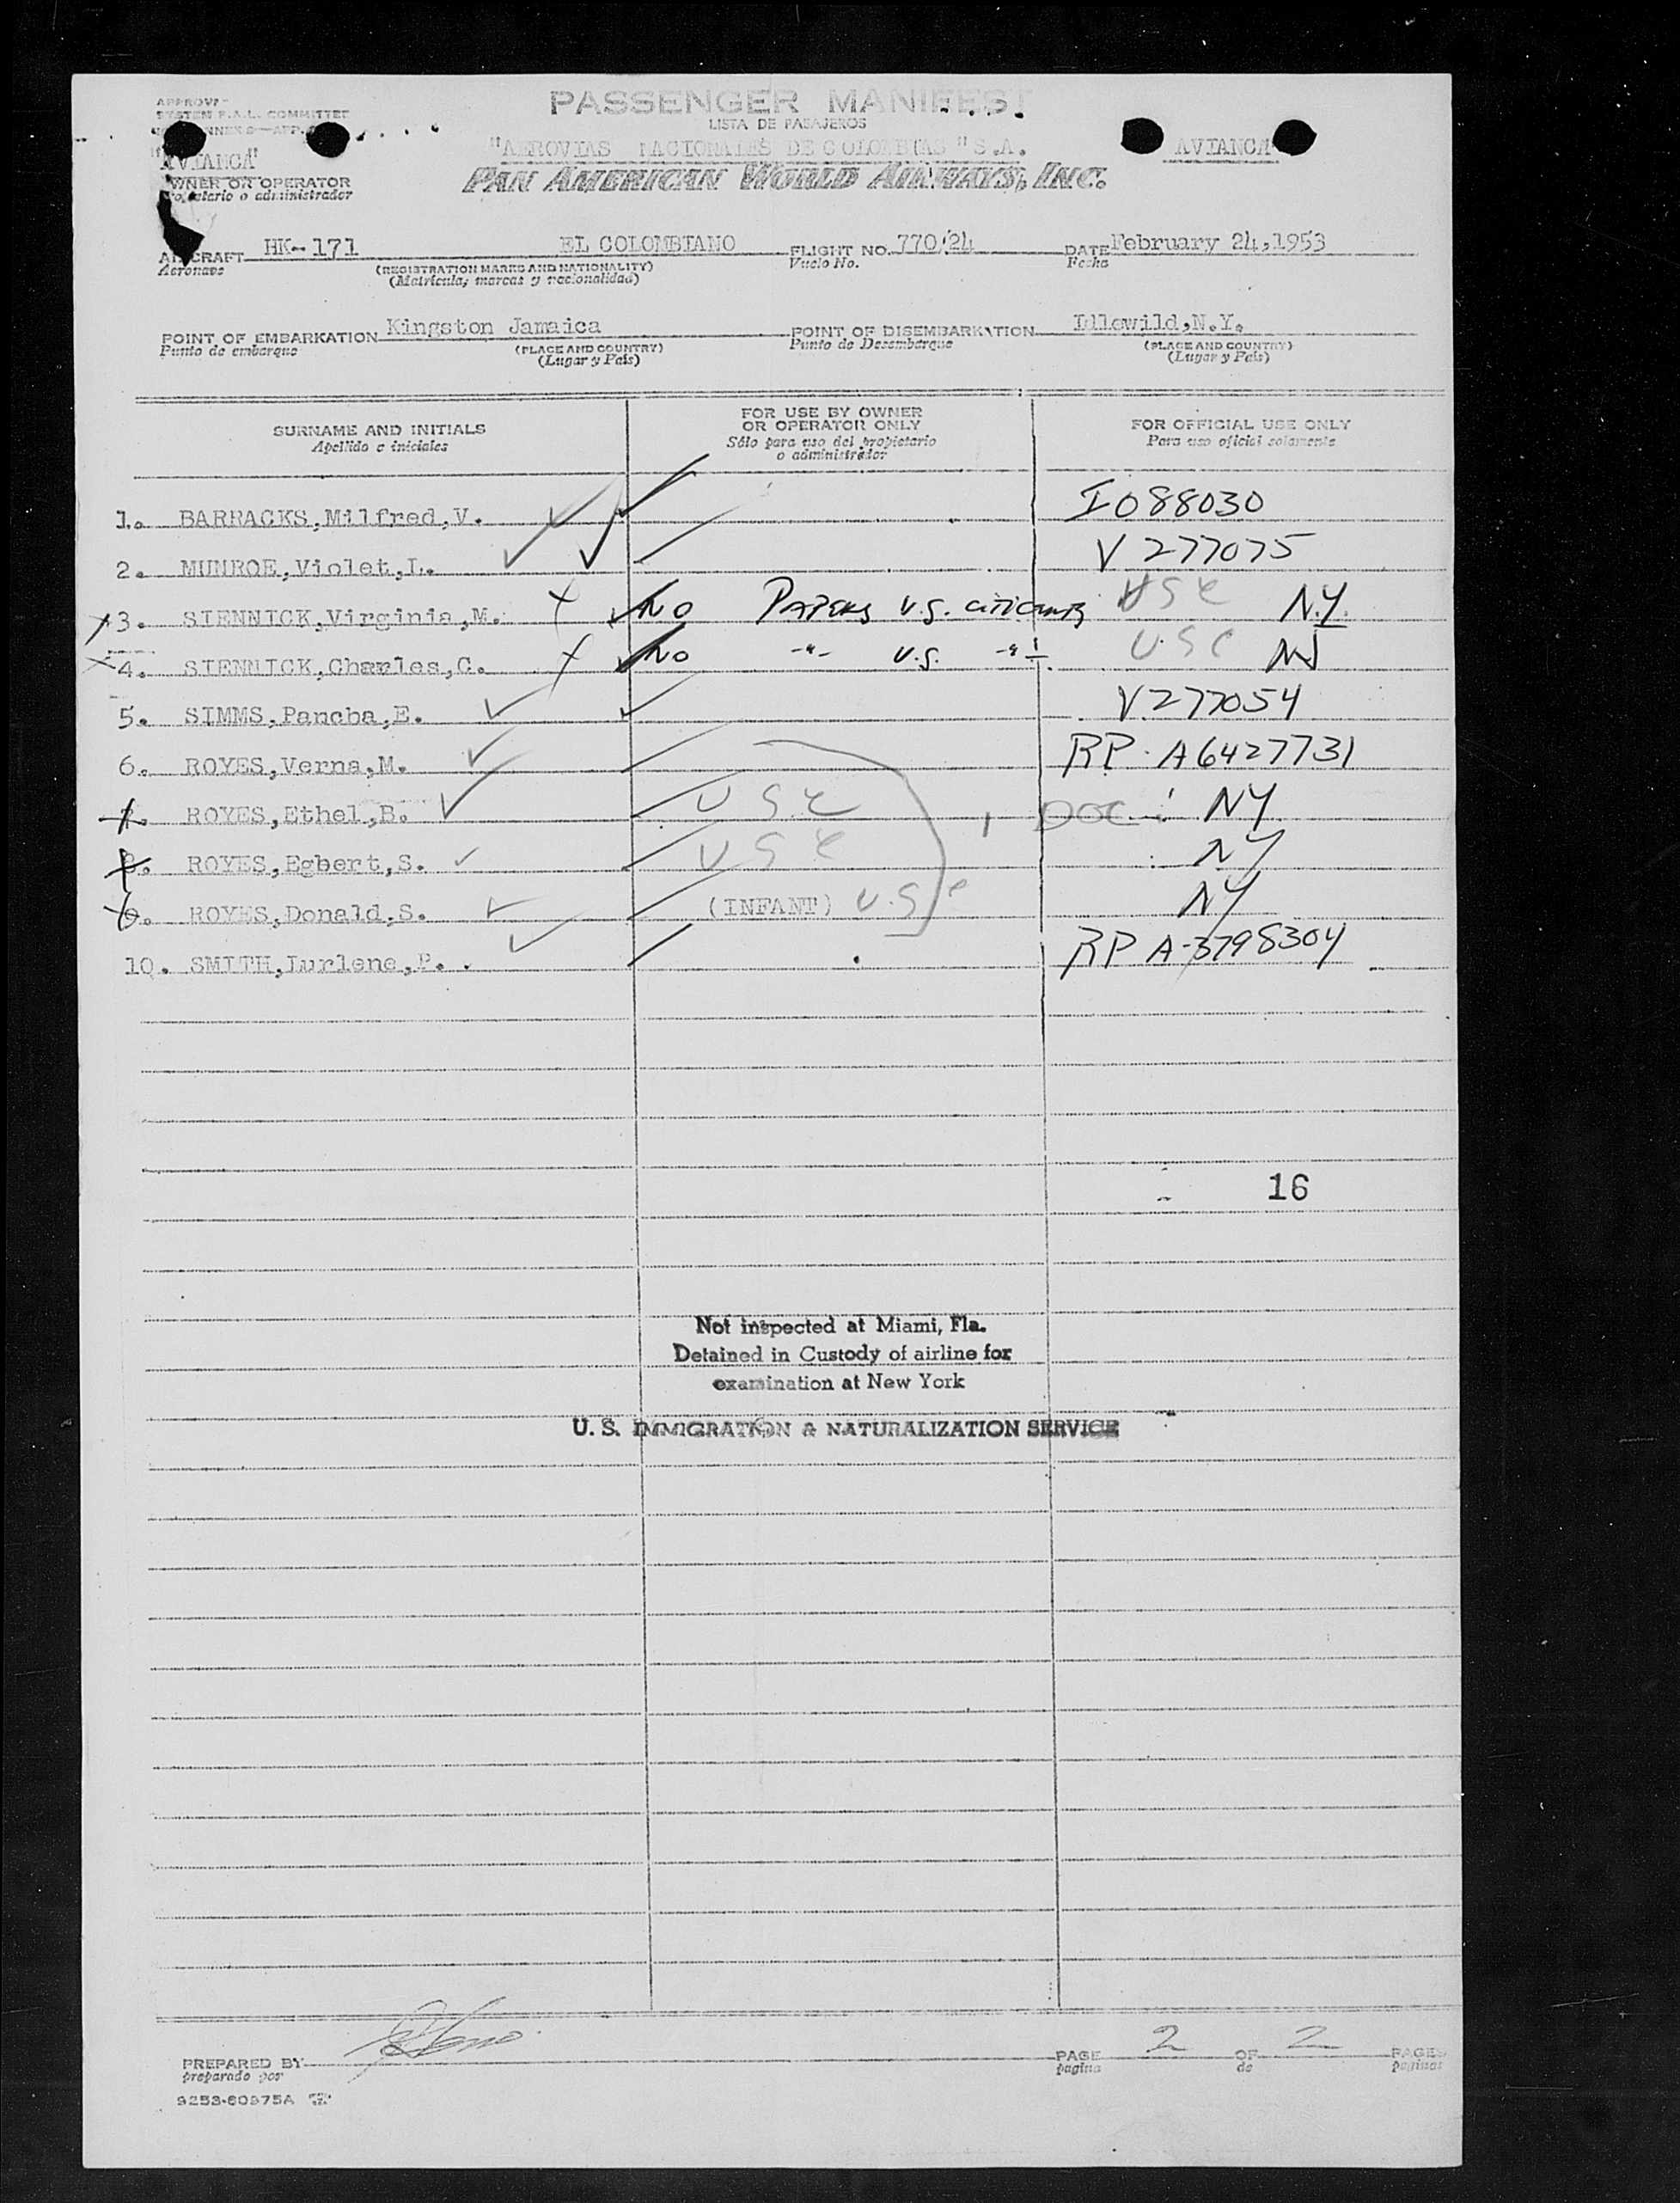 PASSENGER MANIFEST
LISTA DE PASAJEROS
SYSTEM F.A.L. COMMITTEE
"AVIANCA"
OWNER OR OPERATOR
Propietario o administrador
"AEROVIAS NACIONALES DE COLOMBIAS "S.A.
PAN AMERICAN WORLD AIRWAYS, INC.
AVIANCA
AIRCRAFT HK-171 EL COLOMBIANO FLIGHT NO. 770/24 DATE February 24,1953
Aeronave (REGISTRATION MARKS AND NATIONALITY) Vuelo No. Fecha
(Matrícula, marcas y nacionalidad)
POINT OF EMBARKATION Kingston Jamaica POINT OF DISEMBARKATION Idlewild,N.Y.
Punto de embarque (PLACE AND COUNTRY) Punto de Desembarque (PLACE AND COUNTRY)
(Lugar y País) (Lugar y País)
SURNAME AND INITIALS FOR USE BY OWNER OR OPERATOR ONLY FOR OFFICIAL USE ONLY
Apellido e iniciales Sólo para uso del propietario o administrador Para uso oficial solamente
1. BARRACKS,Milfred,V. I 088030
2. MUNROE,Violet,L. V 277075
3. SIENNICK,Virginia,M. NO PAPERS U.S. USC N.Y.
4. SIENNICK,Charles,C. NO -"- U.S. -"- USC NJ
5. SIMMS,Pancha,E. V277054
6. ROYES,Verna,M. RP. A6427731
7. ROYES,Ethel,B. USC DOC NY
8. ROYES,Egbert,S. USC NY
9. ROYES,Donald,S. (INFANT) U.S.C NY
10. SMITH,Lurlene,P. RP A-3798304
16
Not inspected at Miami, Fla.
Detained in Custody of airline for
examination at New York
U. S. IMMIGRATION & NATURALIZATION SERVICE
PREPARED BY PAGE 2 OF 2 PAGES
preparado por pagina de paginas
9253-60975A